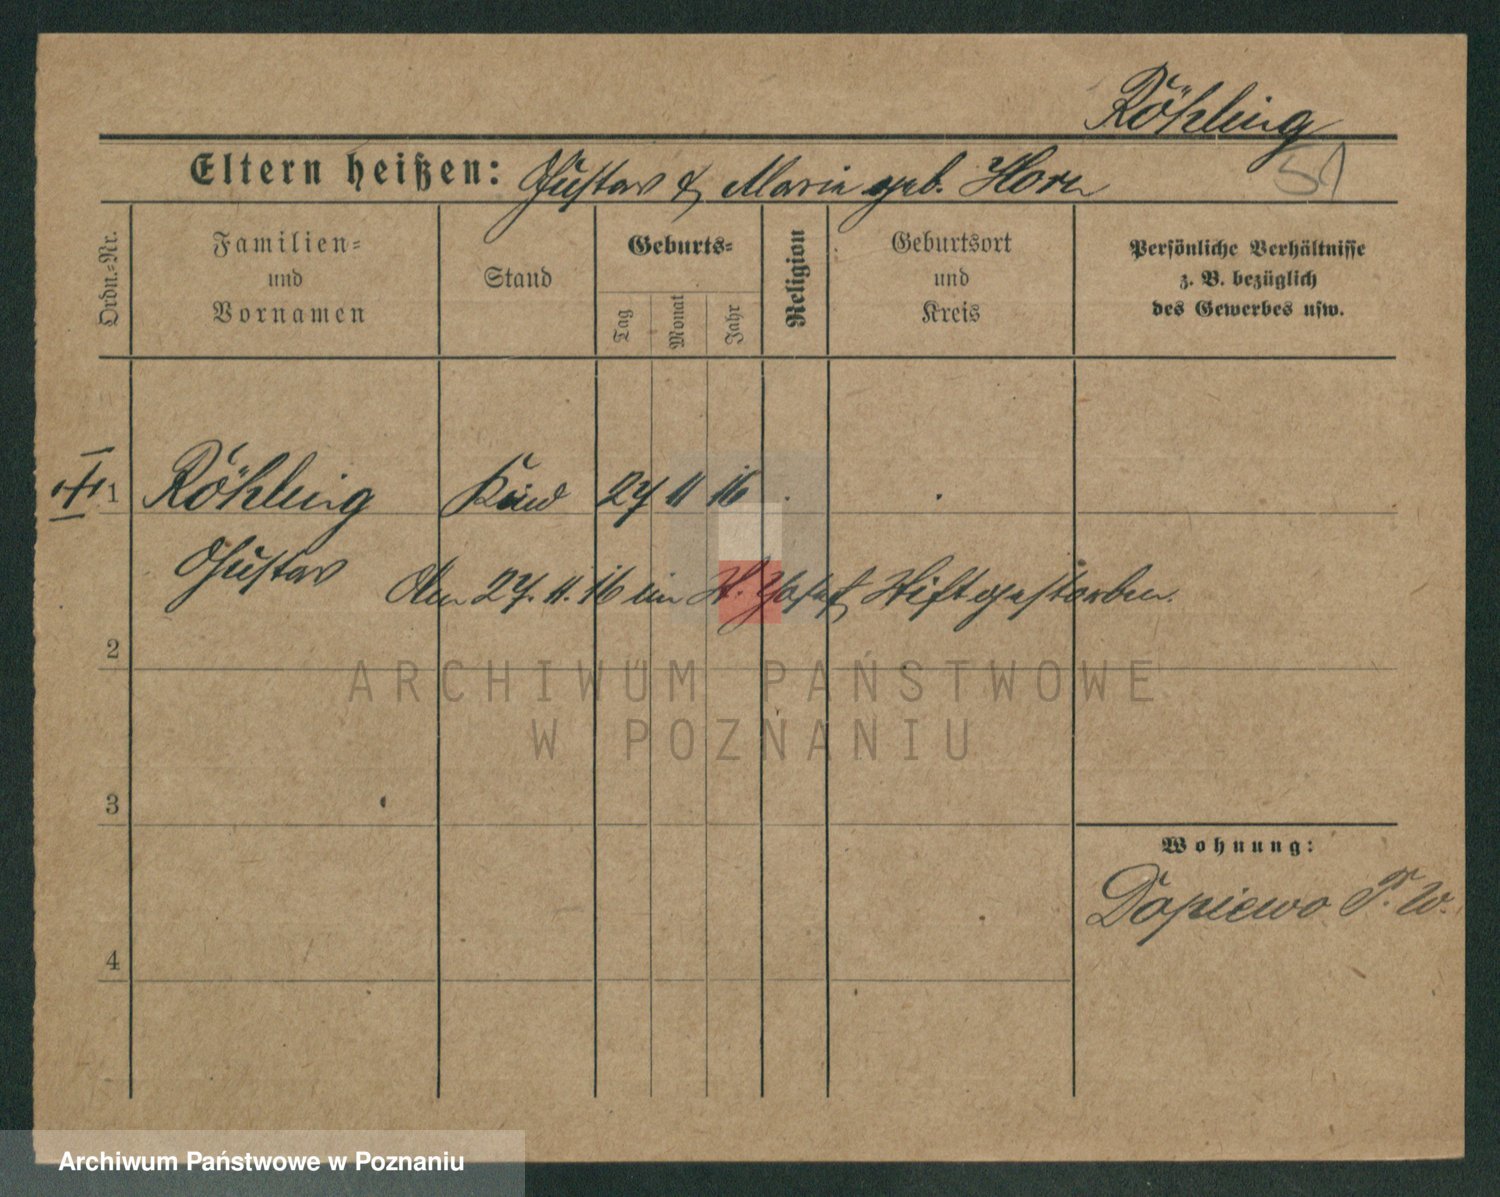 Röhling
51
Eltern heißen: Gustav & Marie geb. Horn
Ordn.-Nr.
Familien-
und
Vornamen
Stand
Geburts-
Tag
Monat
Jahr
Religion
Geburtsort
und
Kreis
Persönliche Verhältnisse
z. B. bezüglich
des Gewerbes usw.
1 Röhling Kind 27 11 16
Gustav
Am 27. 11. 16 im St. Josef Stift gestorben.
2
ARCHIWUM PAŃSTWOWE
W POZNANIU
3
Wohnung:
Dopiewo P. W.
4
Archiwum Państwowe w Poznaniu